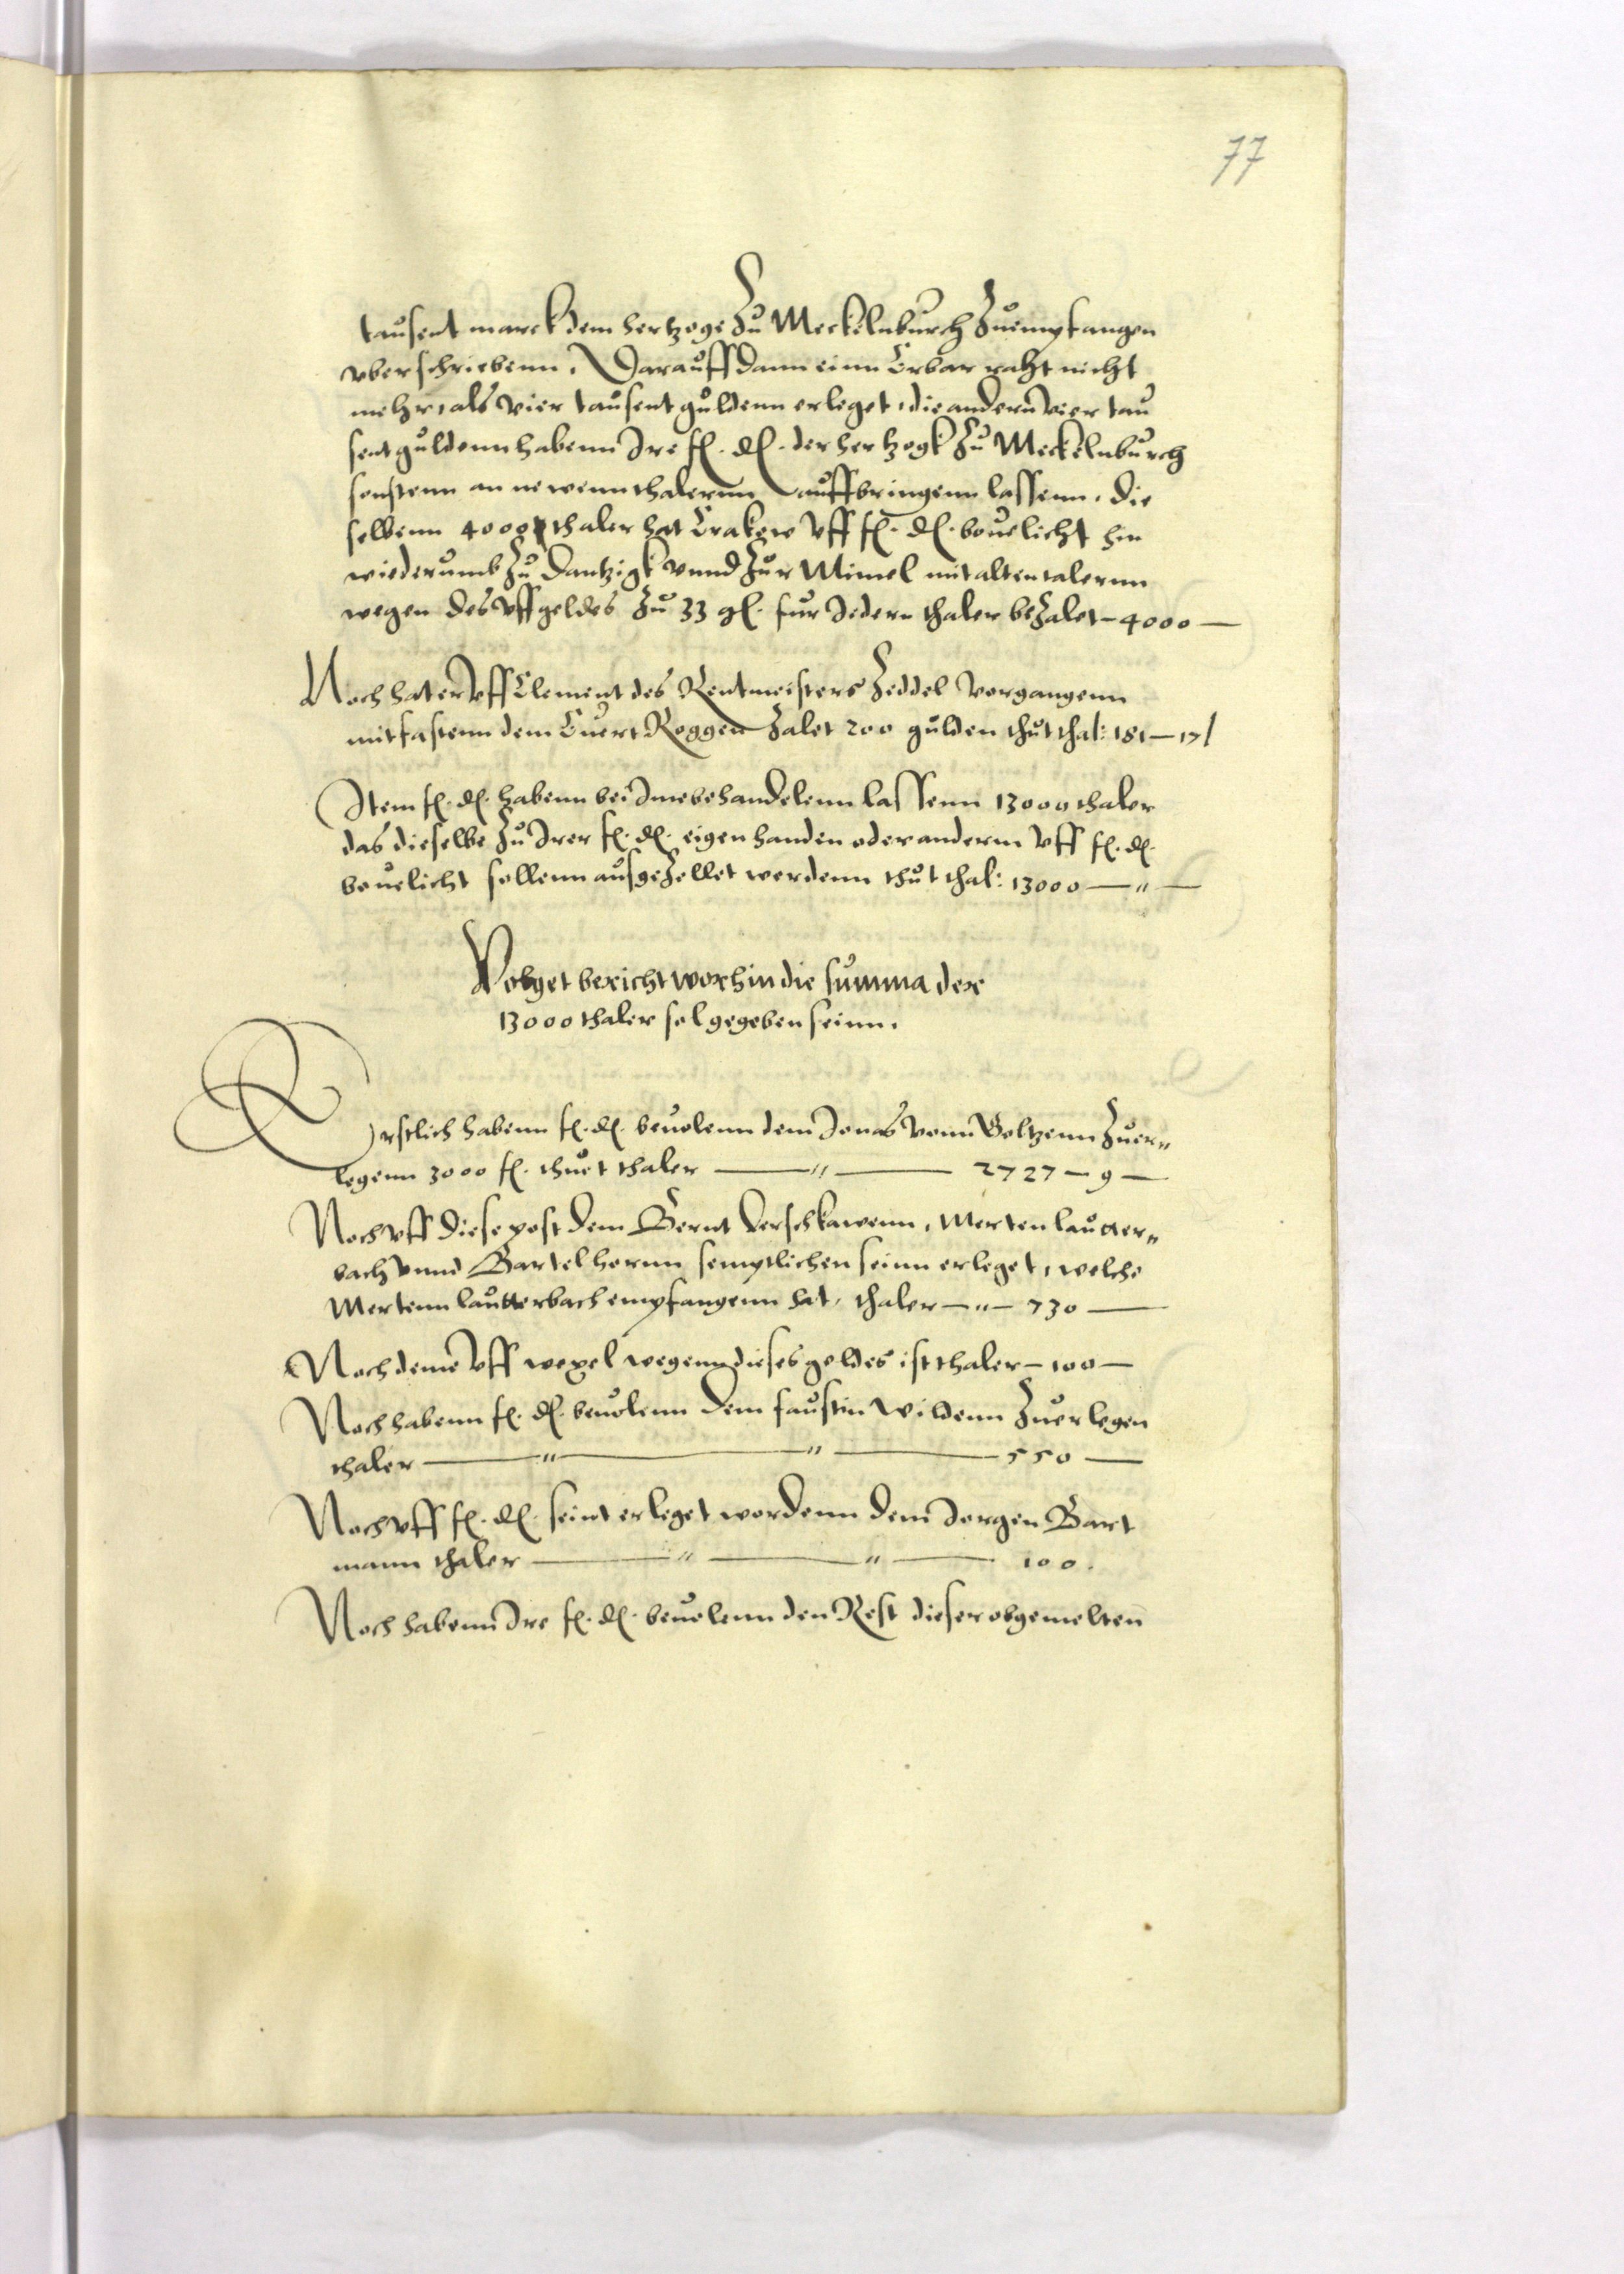 77
tausent marck dem hertzoge Zu Meckelnburch Zuempfangen
vberschriebenn. Darauff dann einn Erbar raht nicht
mehr, als vier tausent guldenn erleget, die andern vier tau
sent guldenn habenn Ire f. d. der hertzogk Zu Meckelnburch
sonstenn an newenn thalernn auffbringenn lassenn. Die
selbenn 4000 thaler hat Crakow vff f. d. beuelicht hin
wiederumb Zu Dantzigk vnnd Zur Mimel mit alten talernn
wegen des vffgeldes Zu 33 gl. fur Jedern thaler beZalet – 4000 —
Noch hat er vff Clement des Rentmeisters Zeddel vorgangenn
mitfastenn dem Cuert Roggen Zalet 200 gulden thut thal: 181 – 17
Item f. d. habenn bei Ime behandelenn lassenn 13000 thaler
das dieselbe Zu Irer f. d. eigen handen oder anderm vff f. d.
beuelicht sollenn ausgeZellet werdenn thut thal: 13000 — " —
Volget bericht worhin die summa der
13000 thaler sol gegeben seinn.
Erstlich habenn f. d. beuolenn dem Jonas vonn Goltzenn Zuer„
legenn 3000 f. thuet thaler — " — 2727 – 9 —
Noch vff diese post dem Bernt Derschkawenn, Merten lautter„
bach vnnd Bartel hernn semptlichen seinn erleget, welche
Mertenn lautterbach empfangenn hat, thaler — " — 730 —
Noch deme vff wexel wegenn dieses geldes ist thaler – 100 —
Noch habenn f. d. beuolenn dem faustin wildenn Zuerlegen
thaler — " — " — 550 —
Noch vff f. d. seint erleget wordenn dem Jorgen Bart
mann thaler — " — " — 100.
Noch habenn Ire f. d. beuolenn den Rest dieser obgemelten